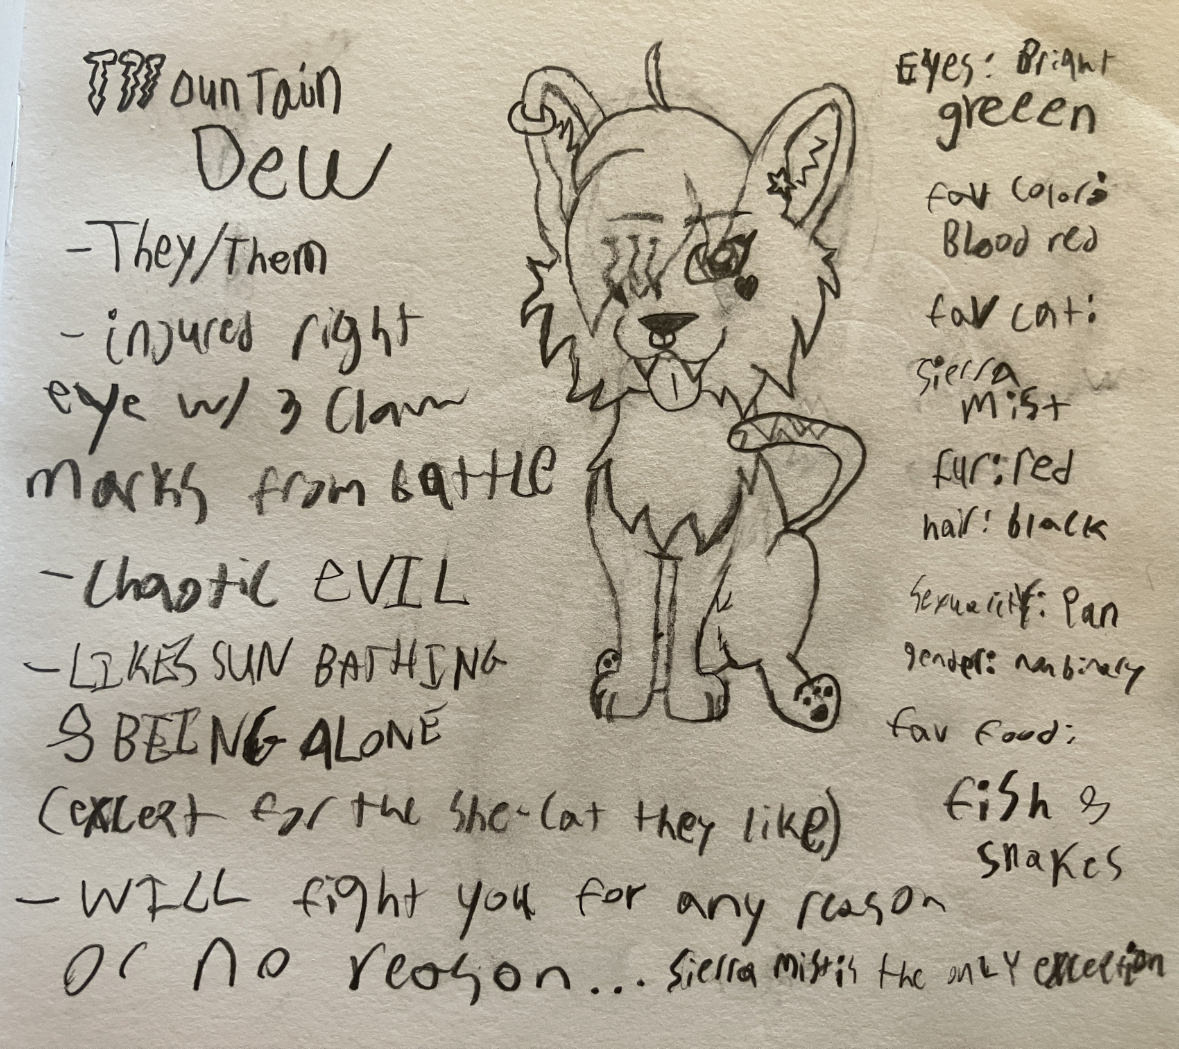 Mountain
Dew
- They/Them
- injured right
eye w/ 3 Claw
Marks from Battle
- Chaotic EVIL
- LIKES SUN BATHING
& BEING ALONE
(except for the she-cat they like)
- WILL fight you for any reason
or no reason... Sierra Mist is the onLY exception
Eyes: Bright
greeen
fav color:
Blood red
fav cat:
Sierra
Mist
fur: red
hair: black
Sexuality: Pan
gender: nonbinary
fav food:
fish &
snakes